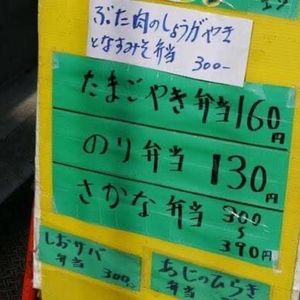 ぶた肉のしょうがやき
となすみそ弁当 300-
たまごやき弁当 160円
のり弁当 130円
さかな弁当 300
〜
390円
しおサバ
弁当 300-
あじのひらき
弁当